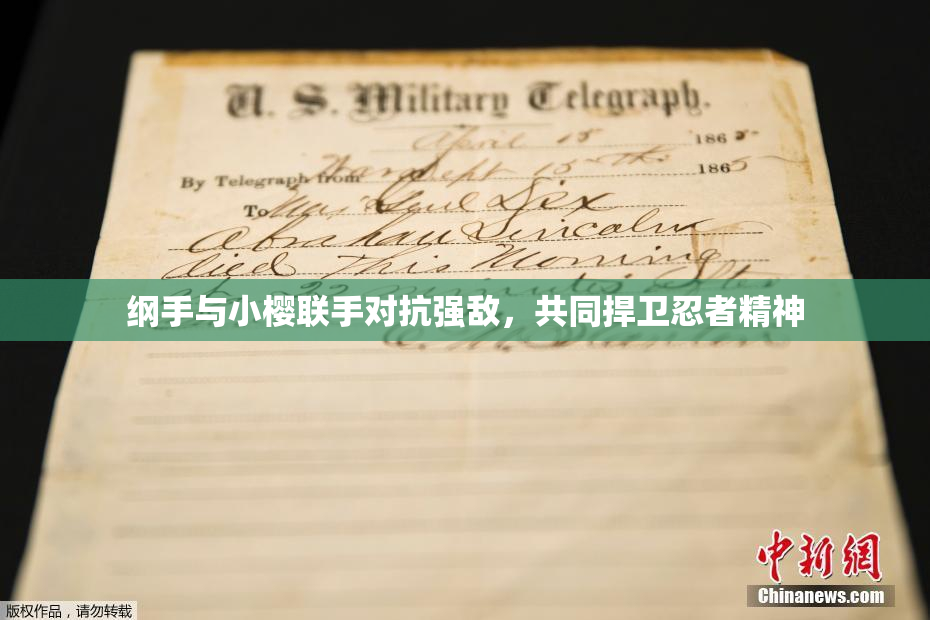 U. S. Military Telegraph.
April 15 1865
By Telegraph from War Dept 15th 1865
To Maj Genl Dix
Abraham Lincoln
died This Morning
22 minutes after
纲手与小樱联手对抗强敌，共同捍卫忍者精神
E. M. Stanton
中新网
Chinanews.com
版权作品，请勿转载